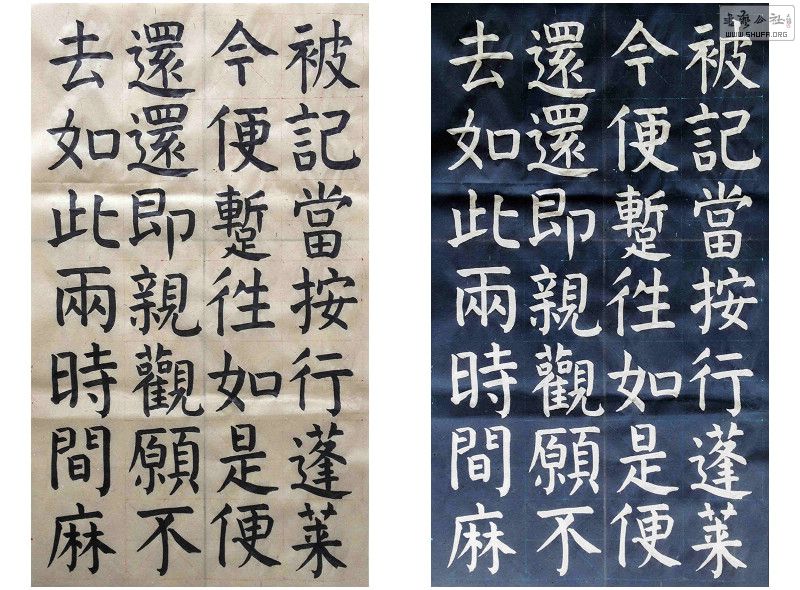 被記當按行蓬莱
今便蹔徃如是便
還還即親觀願不
去如此兩時間麻
被記當按行蓬莱
今便蹔徃如是便
還還即親觀願不
去如此兩時間麻
書藝公社
WWW.SHUFA.ORG